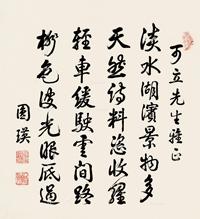 可立先生雅正
淡水湖濱景物多
天然詩料恣收羅
輕車緩駛雲間路
柳色波光眼底過
圓瑛